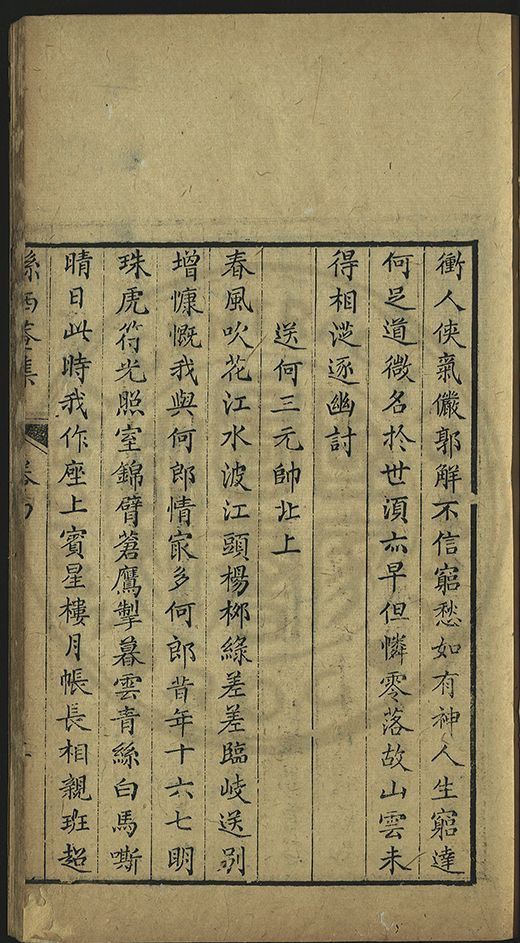 衝人俠氣儼郭解不信窮愁如有神人生窮達
何足道微名於世湏亦早但憐零落故山雲未
得相從逐幽討
送何三元帥北上
春風吹花江水波江頭楊柳綠差差臨岐送别
增慷慨我與何郎情㝡多何郎昔年十六七明
珠虎符光照室錦臂蒼鷹掣暮雲青絲白馬嘶
晴日此時我作座上賓星樓月帳長相親班超